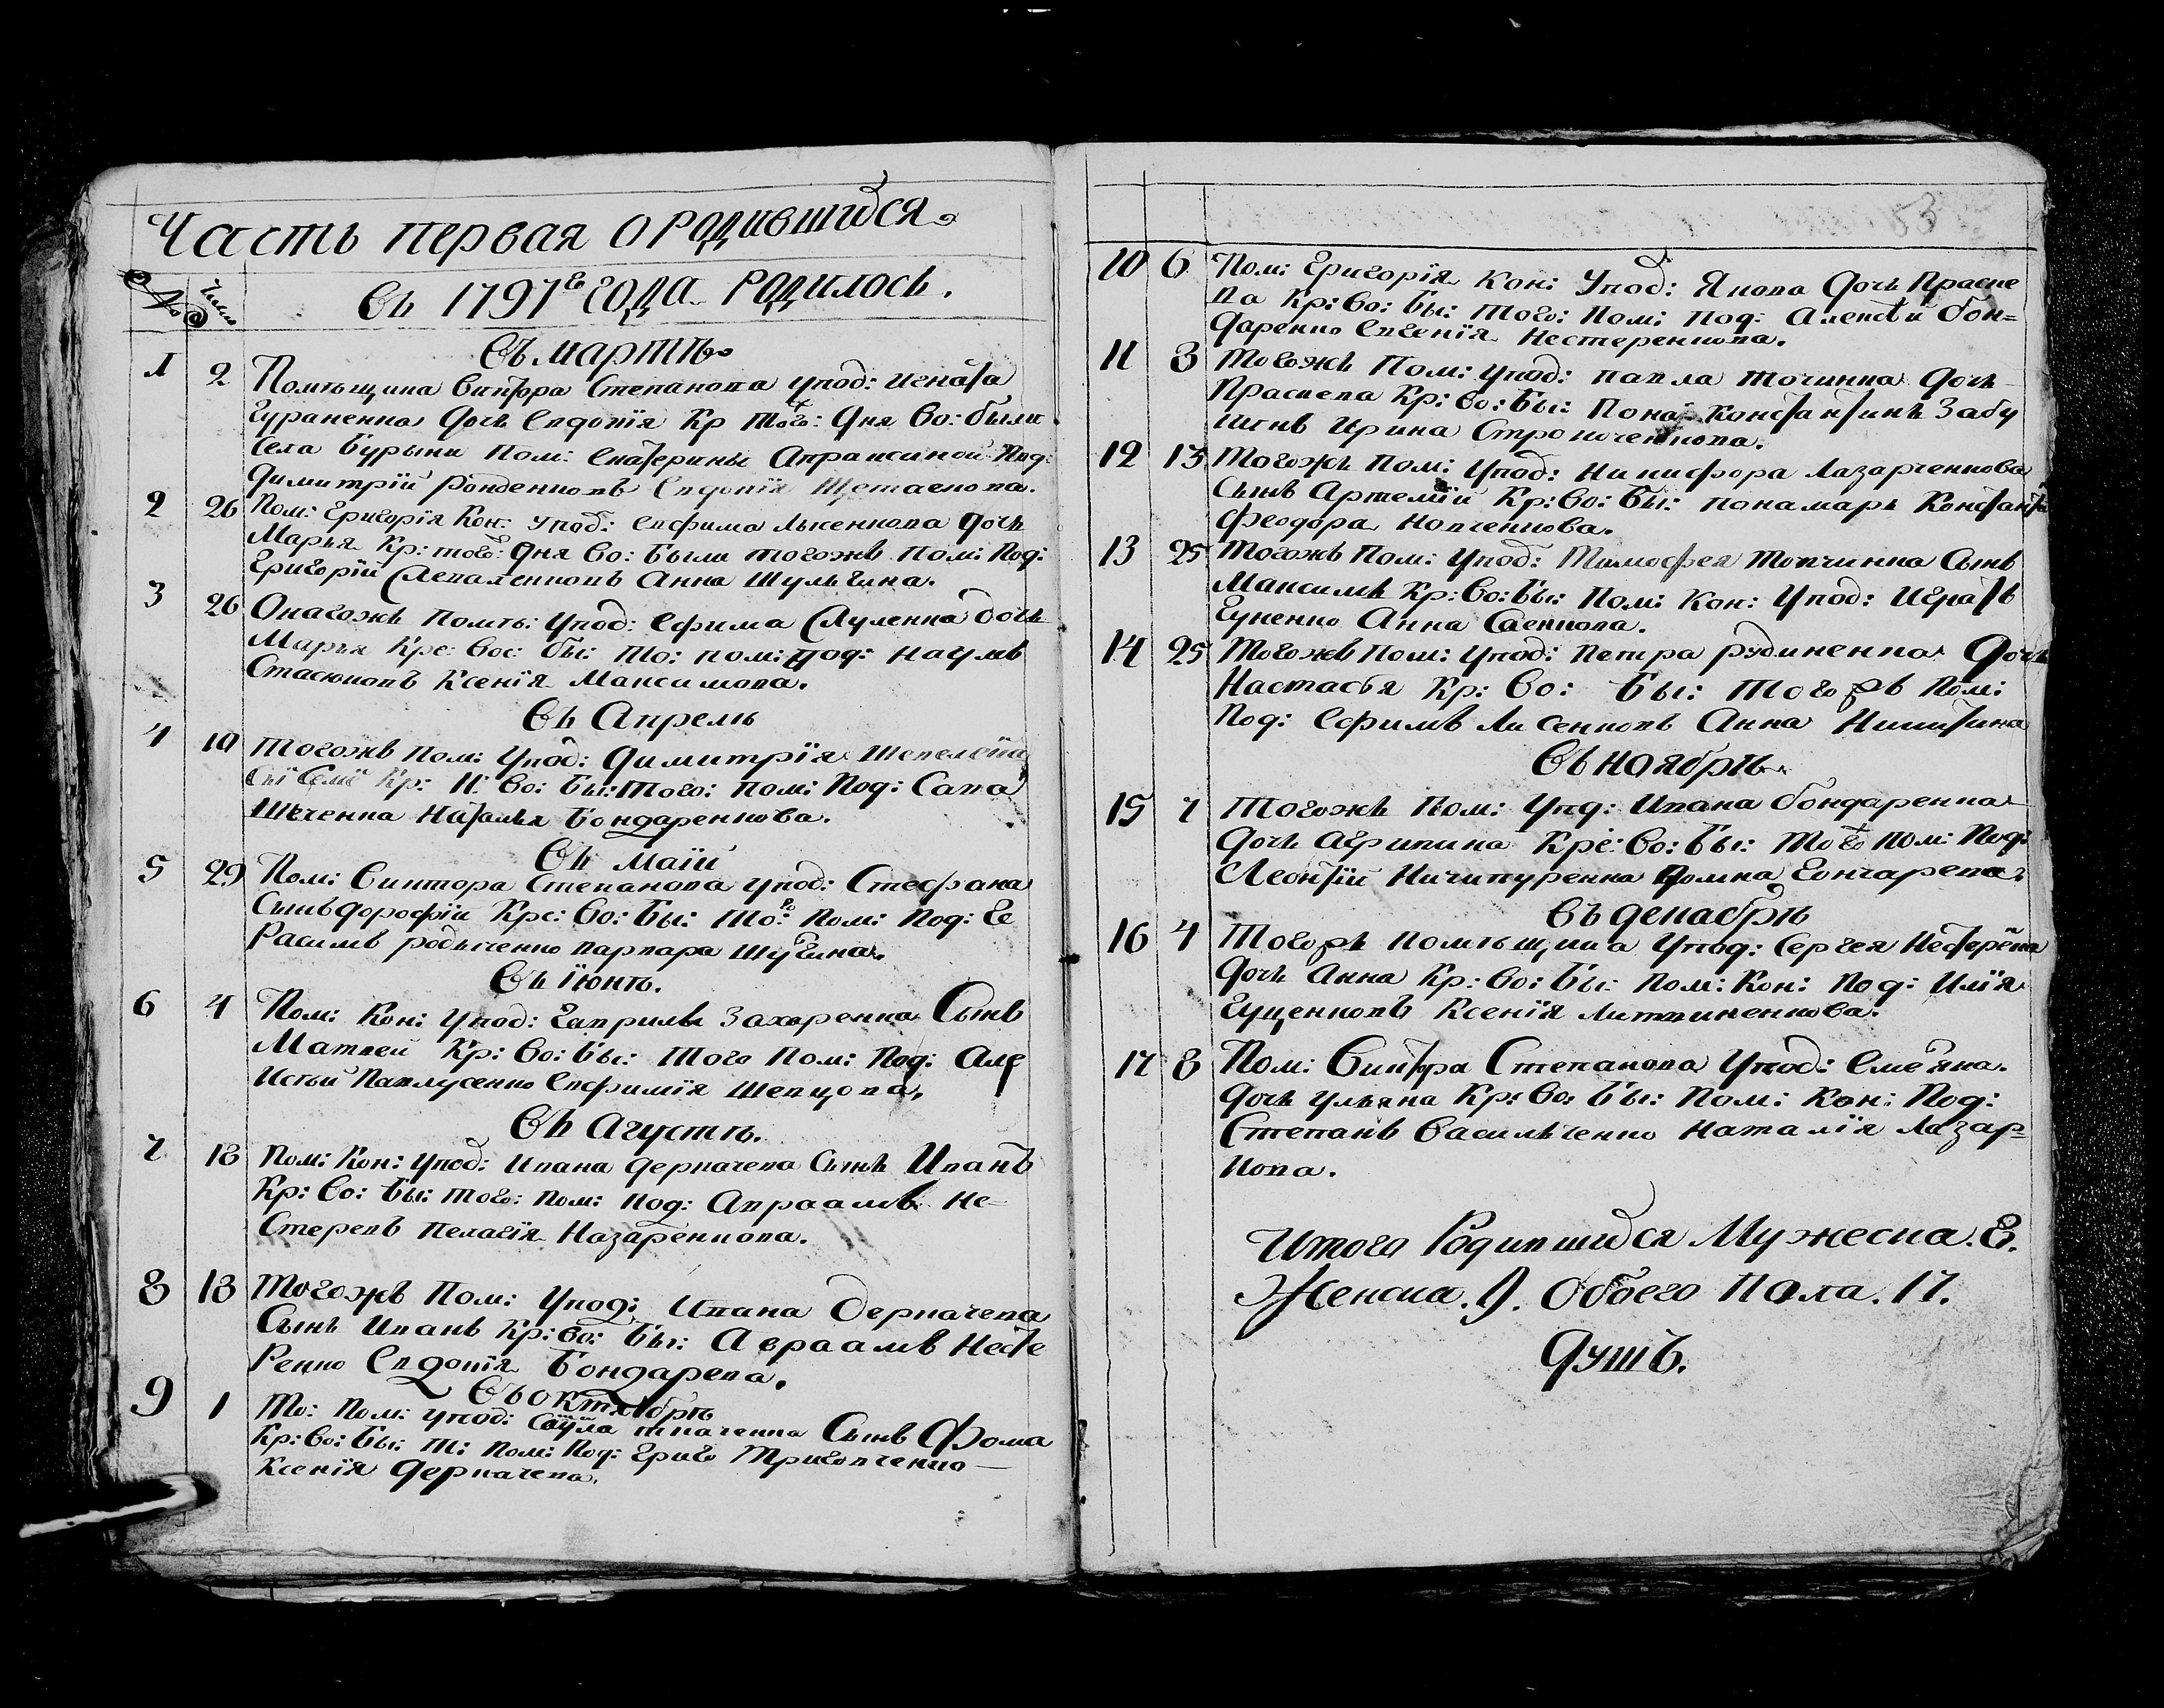 Часть первая о родившихся
№ Число
Въ 1797го года родилось.
Въ мартѣ
1 2 Помѣщика Виктора Степанова упод: Игната
Гураненка дочь Евдокія Кр того: дня во: были
села Бурыни Пом: Екатерины Апраксиной под:
Димитрій Ронденковъ Евдокія
2 26 Пом: Григорія Кон: упод: Евфима Лысенкова дочь
Марья Кр: того: дня во: были тогожъ пом: под:
Григорій Анна Шульгина.
3 26 Онагожъ помѣ: упод: Ефима дочь
Марья Кре: вос: бы: то: пом: под: Наумъ
Стасюковъ Ксенія Максимова.
Въ Апрелѣ
4 19 Тогожъ пом: упод: Димитрія
Кр: и во: бы: того: пом: под: Сава
Наталья Бондаренкова.
Въ маіи
5 29 Пом: Виктора Степанова упод: Стефана
сынъ Дорофій Кре: во: бы: того: пом: под: Ге
расимъ Варвара
Въ іюнѣ.
6 4 Пом: Кон: упод: Гаврила Захаренка сынъ
Матвей Кр: во: бы: того пом: под: Але
ксѣй Павлусенко Евфимія Шевцова.
Въ Августѣ.
7 18 Пом: Кон: упод: Ивана Деркачева сынъ Иванъ
Кр: во: бы: того: пом: под: Авраамъ Не-
стеревъ Пелагія Назаренкова.
8 18 Тогожъ Пом: упод: Ивана Деркачева
сынъ Иванъ Кр: во: бы: Авраамъ Несте
ренко Евдокія Бондарева.
Въ октябрѣ
9 1 То: пом: упод: Савула ткаченка сынъ Фома
Кр: во: бы: т: пом: под: Григо
Ксенія Деркачева.
53
10 6 Пом: Григорія Кон: упод: Якова дочь Праске
ва Кр: во: бы: того: пом: под: Алексѣй Бон=
даренко Евгенія Нестеренкова.
11 8 Тогожъ Пом: упод: Павла дочь
Праскева Кр: во: бы: Пона: Константинъ Забу
Ирина
12 13 Тогожъ пом: упод: Никифора Лазарченкова
сынъ Артемій Кр: во: бы: понамарь
Феодора
13 25 Тогожъ пом: упод: Тимофея сынъ
Максимъ Кр: во: бы: пом: Кон: упод: Игнатъ
Анна
14 25 Тогожъ пом: упод: Петра Рудиненка дочь
Настасья Кр: во: бы: тогожъ пом:
под: Ефимъ Лисенковъ Анна Никитина
Въ ноябрѣ
15 7 Тогожъ пом: упд: Ивана Бондаренка
дочь Агрипина Кре: во: бы: того пом: под:
Леонтій Ничипуренка Домна Гончарева.
Въ декабрѣ
16 4 Тогожъ помѣщика упод: Сергея
дочь Анна Кр: во: бы: пом: Кон: под: Илія
Гущенковъ Ксенія Литвиненкова.
17 8 Пом: Виктора Степанова упод: Емеяна
дочь Ульяна Кр: во: бы: пом: Кон: под:
Степанъ Васильченко Наталія Лазар=
кова.
Итого Родившихся Мужеска. 8.
Женска. 9. Обоего пола. 17.
Душъ.